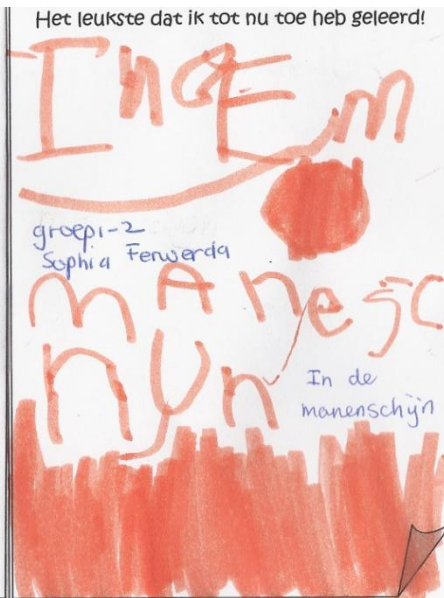 Het leukste dat ik tot nu toe heb geleerd!
Inde m
groep1-2
Sophia Ferwerda
manesc
nyn
In de
manenschijn